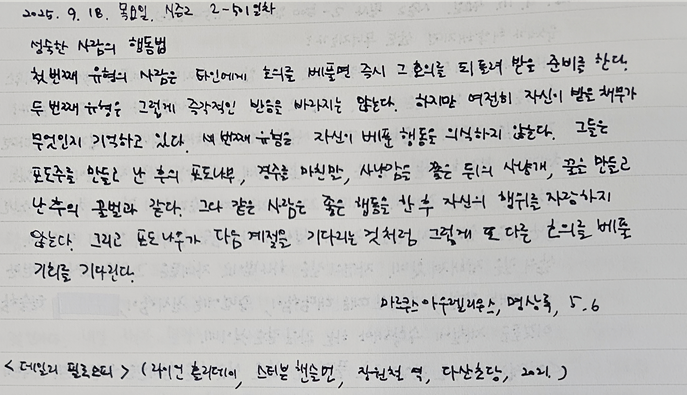 2025. 9. 18. 목요일. 시즌2 2-501일차
성숙한 사람의 행동법
첫번째 유형의 사람은 타인에게 호의를 베풀면 즉시 그 호의를 되돌려 받을 준비를 한다.
두번째 유형은 그렇게 즉각적인 반응을 바라지는 않는다. 하지만 여전히 자신이 받을 채무가
무엇인지 기억하고 있다. 세 번째 유형은 자신이 베푼 행동을 의식하지 않는다. 그들은
포도주를 만들고 난 후의 포도나무, 경주를 마친 말, 사냥감을 쫓은 뒤의 사냥개, 꿀을 만들고
난 후의 꿀벌과 같다. 그와 같은 사람은 좋은 행동을 한 후 자신의 행위를 자랑하지
않는다. 그리고 포도나무가 다음 계절을 기다리는 것처럼 그렇게 또 다른 호의를 베풀
기회를 기다린다.
마르쿠스 아우렐리우스, 명상록, 5.6
<데일리 필로소피> (라이언 홀리데이, 스티븐 핸슬먼, 장원철 역, 다산초당, 2021.)